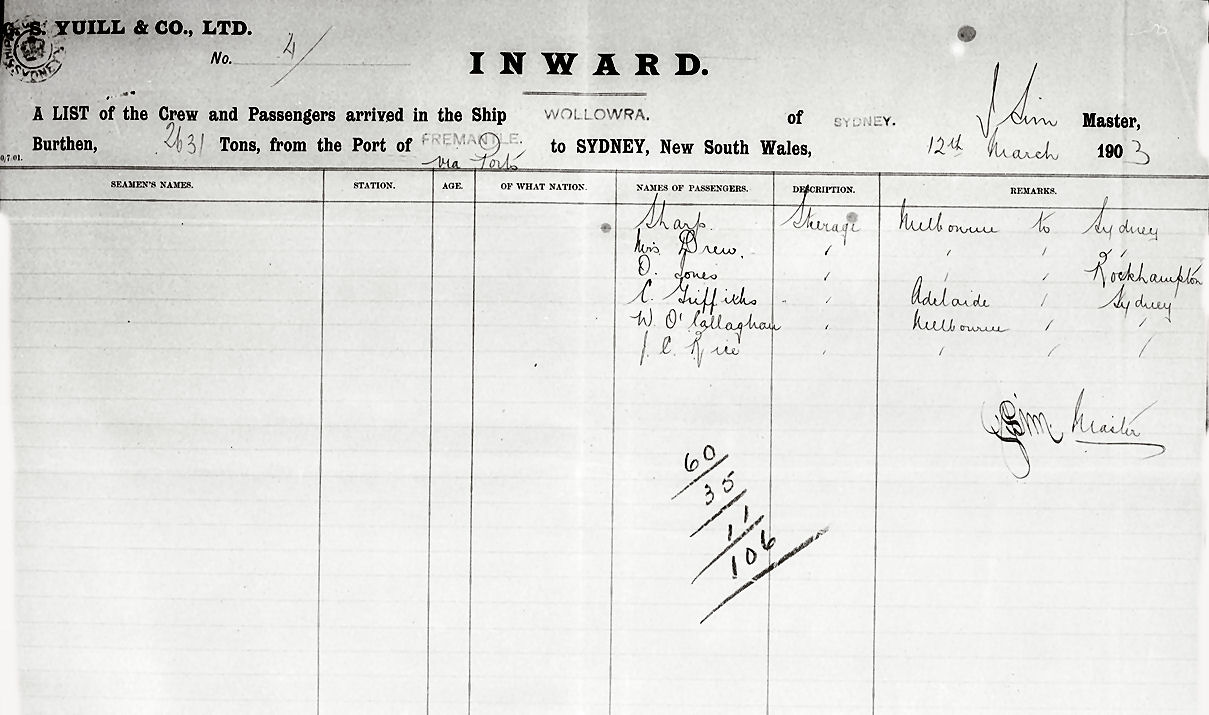 G. S. YUILL & CO., LTD.
No. 4/
INWARD.
A LIST of the Crew and Passengers arrived in the Ship WOLLOWRA. of SYDNEY. J Sim Master,
Burthen, 2631 Tons, from the Port of FREMANTLE. to SYDNEY, New South Wales, 12th March 1903
via Ports
SEAMEN'S NAMES. STATION. AGE. OF WHAT NATION. NAMES OF PASSENGERS. DESCRIPTION. REMARKS.
Sharp. Steerage Melbourne to Sydney
Mrs Drew. " " " "
O. Jones " " " Rockhampton
C. Griffiths " Adelaide " Sydney
W. O'Callaghan " Melbourne " "
J. C. Rice " " " "
J Sim Master
60
35
11
106